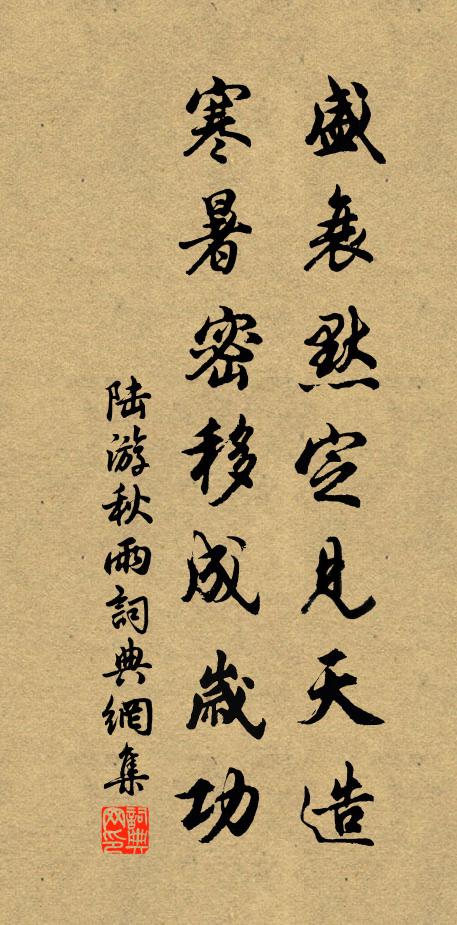 盛衰默定見天造
寒暑密移成歲功
陆游秋雨詞典網集
詞典网印